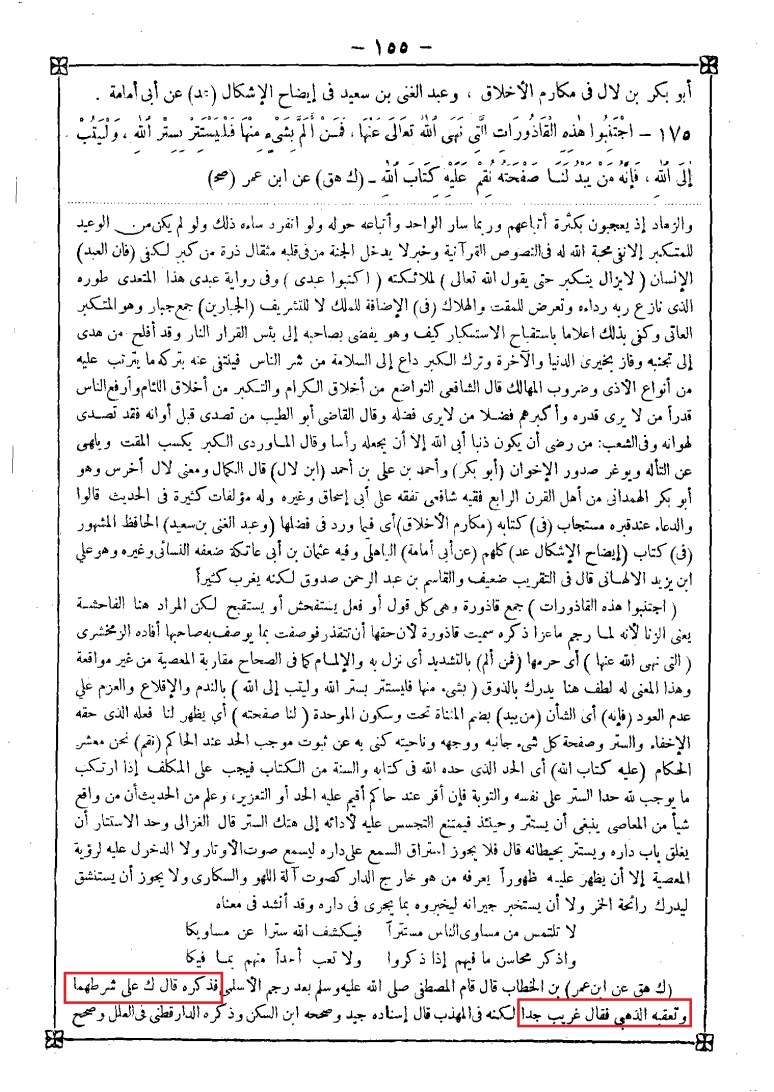 – ١٥٥ –
أبو بكر بن لال فى مكارم الأخلاق ، وعبد الغنى بن سعيد فى إيضاح الإشكال (عد) عن أبى أمامة .
١٧٥ – اجْتَنِبُوا هٰذِهِ الْقَاذُورَاتِ الَّتِى نَهَى اللهُ تَعَالَى عَنْهَا ، فَمَنْ أَلَمَّ بِشَىْءٍ مِنْهَا فَلْيَسْتَتِرْ بِسِتْرِ اللهِ ، وَلْيَتُبْ
إِلَى اللهِ ، فَإِنَّهُ مَنْ يَبْدُ لَنَا صَفْحَتَهُ نُقِمْ عَلَيْهِ كِتَابَ اللهِ – (ك هق) عن ابن عمر (صح)
والزهاد إذ يعجبون بكثرة أتباعهم وربما سار الواحد وأتباعه حوله ولو انفرد ساءه ذلك ولو لم يكن من الوعيد
للمتكبر إلا نفى محبة الله له فى النصوص القرآنية وخبر لا يدخل الجنة من فى قلبه مثقال ذرة من كبر لكفى (فان العبد)
الإنسان (لايزال يتكبر حتى يقول الله تعالى) لملائكته (اكتبوا عبدى) وفى رواية عبدى هذا المتعدى طوره
الذى نازع ربه رداءه وتعرض للمقت والهلاك (فى) الإضافة للملك لا للتشريف (الجبارين) جمع جبار وهو المتكبر
العاتى وكفى بذلك اعلاما باستقباح الاستكبار كيف وهو يفضى بصاحبه إلى بئس القرار النار وقد أفلح من هدى
إلى تجنبه وفاز بخيرى الدنيا والآخرة وترك الكبر داع إلى السلامة من شر الناس فينتفى عنه بتركه ما يترتب عليه
من أنواع الأذى وضروب المهالك قال الشافعى التواضع من أخلاق الكرام والتكبر من أخلاق اللئام وأرفع الناس
قدراً من لا يرى قدره وأكبرهم فضلا من لايرى فضله وقال القاضى أبو الطيب من تصدى قبل أوانه فقد تصدى
لهوانه وفى الشعب: من رضى أن يكون ذنبا أبى الله إلا أن يجعله رأسا وقال الماوردى الكبر يكسب المقت ويلهى
عن التأله ويوغر صدور الإخوان (أبو بكر) وأحمد بن على بن أحمد (ابن لال) قال الكمال ومعنى لال أخرس وهو
أبو بكر الهمدانى من أهل القرن الرابع فقيه شافعى تفقه على أبى إسحاق وغيره وله مؤلفات كثيرة فى الحديث قالوا
والدعاء عند قبره مستجاب (فى) كتابه (مكارم الأخلاق) أى فيما ورد فى فضلها (وعبد الغنى بن سعيد) الحافظ المشهور
(فى) كتاب (إيضاح الإشكال عد) كلهم (عن أبى أمامة) الباهلى وفيه عثمان بن أبى عاتكة ضعفه النسائى وغيره وهو على
ابن يزيد الالهانى قال فى التقريب ضعيف والقاسم بن عبد الرحمن صدوق لكنه يغرب كثيراً
(اجتنبوا هذه القاذورات) جمع قاذورة وهى كل قول أو فعل يستفحش أو يستقبح لكن المراد هنا الفاحشة
يعنى الزنا لأنه لما رجم ماعزا ذكره سميت قاذورة لأن حقها أن تتقذر فوصفت بما يوصف به صاحبها أفاده الزمخشرى
(التى نهى الله عنها) أى حرمها (فمن ألم) بالتشديد أى نزل به والإلمام كما فى الصحاح مقاربة المعصية من غير مواقعة
وهذا المعنى له لطف هنا يدرك بالذوق (بشىء منها فليستتر بستر الله وليتب إلى الله) بالندم والإقلاع والعزم على
عدم العود (فإنه) أى الشأن (من يبد) بضم المثناة تحت وسكون الموحدة (لنا صفحته) أي يظهر لنا فعله الذى حقه
الإخفاء والستر وصفحة كل شىء جانبه ووجهه وناحيته كنى به عن ثبوت موجب الحد عند الحاكم (نقم) نحن معشر
الحكام (عليه كتاب الله) أى الحد الذى حده الله فى كتابه والسنة من الكتاب فيجب على المكلف إذا ارتكب
ما يوجب لله حدا الستر على نفسه والتوبة فإن أقر عند حاكم أقيم عليه الحد أو التعزير، وعلم من الحديث أن من واقع
شيأ من المعاصى ينبغى أن يستتر وحينئذ فيمتنع التجسس عليه لأدائه إلى هتك الستر قال الغزالى وحد الاستتار أن
يغلق باب داره ويستتر بحيطانه قال فلا يجوز استراق السمع على داره ليسمع صوت الأوتار ولا الدخول عليه لرؤية
المعصية إلا أن يظهر عليه ظهوراً يعرفه من هو خارج الدار كصوت آلة اللهو والسكارى ولا يجوز أن يستنشق
ليدرك رائحة الخمر ولا أن يستخبر جيرانه ليخبروه بما يجرى فى داره وقد أنشد فى معناه
لا تلتمس من مساوى الناس مستتراً فيكشف الله سترا عن مساويكا
واذكر محاسن ما فيهم إذا ذكروا ولا تعب أحداً منهم بما فيكا
(ك هق عن ابن عمر) بن الخطاب قال قام المصطفى صلى الله عليه وسلم بعد رجم الأسلمى فذكره قال ك على شرطهما
وتعقبه الذهبى فقال غريب جدا لكنه فى المهذب قال إسناده جيد وصححه ابن السكن وذكره الدارقطنى فى العلل وصحح